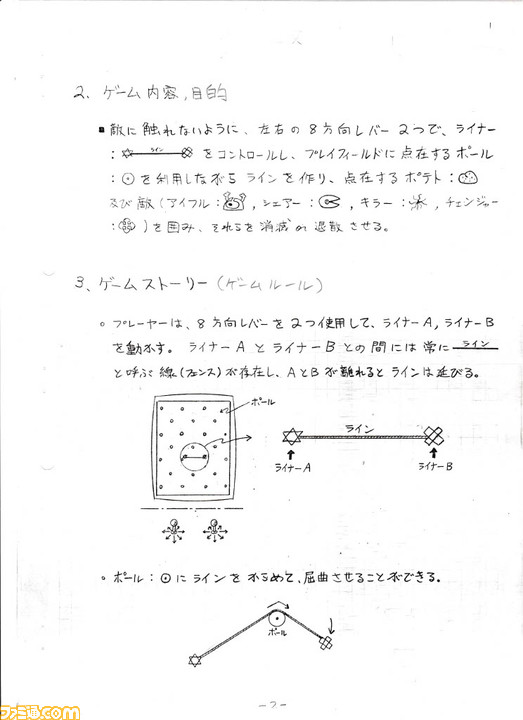 1
2、ゲーム内容,目的
■ 敵に触れないように、左右の8方向レバー2つで、ライナー
: ライン をコントロールし、プレイフィールドに点在するポール
: を利用しながらラインを作り、点在するポテト:
及び敵(アイフル: , シェアー: , キラー: , チェンジャー
: )を囲み、それらを消滅or退散させる。
3、ゲームストーリー(ゲームルール)
○ プレーヤーは、8方向レバーを2つ使用して、ライナーA,ライナーB
を動かす。ライナーAとライナーBとの間には常に ライン
と呼ぶ線(フェンス)が存在し、AとBが離れるとラインは延びる。
ポール
ライン
ライナーA
ライナーB
○ ポール: にラインをからめて、屈曲させることができる。
ポール
-2-
ファミ通.com